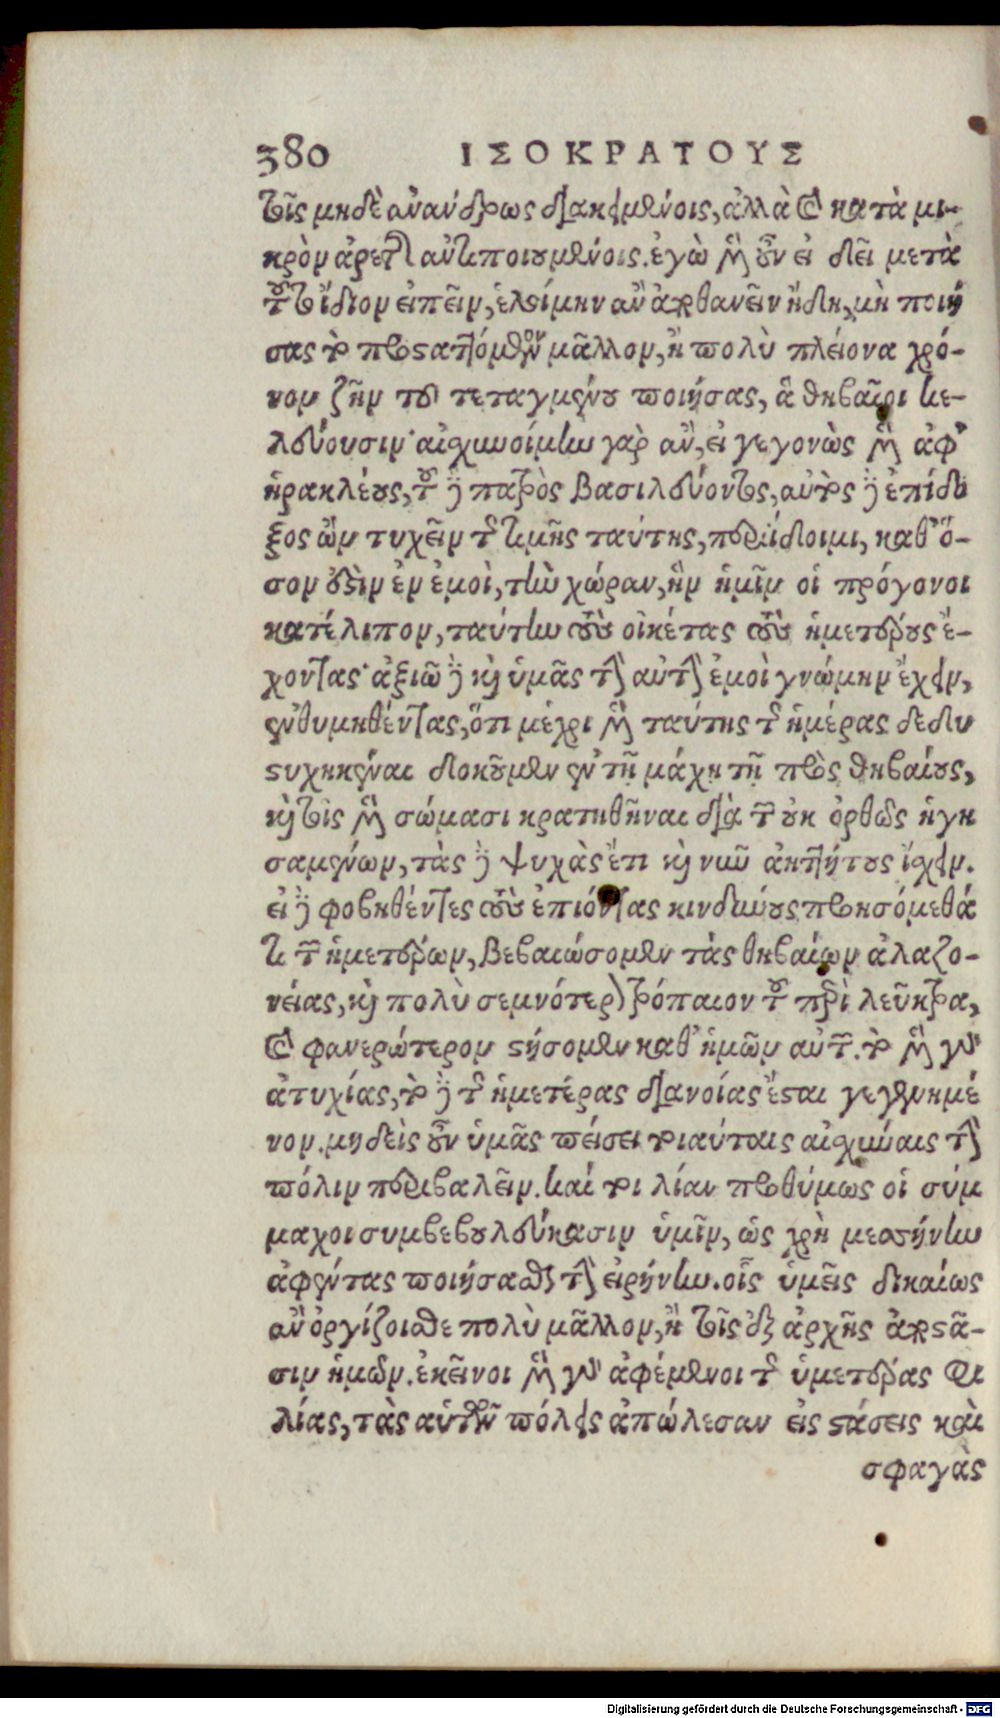 380 ΙΣΟΚΡΑΤΟΥΣ
τοῖς μηδὲ ἀνάνδρως διακειμένοις, ἀλλὰ καὶ κατὰ μι-
κρὸν ἀρετῆς ἀντιποιουμένοις. ἐγὼ μὲν οὖν εἰ δεῖ μετὰ
τοῦτ' ἴδιον εἰπεῖν, ἑλοίμην ἂν ἀποθανεῖν ἤδη, μὴ ποιή
σας τὸ προσταττόμενον μᾶλλον, ἢ πολὺ πλείονα χρό-
νον ζῆν τοῦ τεταγμένου ποιήσας, ἃ θηβαῖοι κε-
λεύουσιν· αἰσχυνοίμην γὰρ ἂν, εἰ γεγονὼς μὲν ἀφ'
ἡρακλέους, τοῦ δὲ πατρὸς βασιλεύοντος, αὐτὸς δὲ ἐπίδο
ξος ὢν τυχεῖν τῆς τιμῆς ταύτης, περιίδοιμι, καθ' ὅ-
σον ἐστὶν ἐν ἐμοὶ, τὴν χώραν, ἣν ἡμῖν οἱ πρόγονοι
κατέλιπον, ταύτην τοὺς οἰκέτας τοὺς ἡμετέρους ἔ-
χοντας· ἀξιῶ δὲ καὶ ὑμᾶς τὴν αὐτὴν ἐμοὶ γνώμην ἔχειν,
ἐνθυμηθέντας, ὅτι μέχρι μὲν ταύτης τῆς ἡμέρας δεδυ
στυχηκέναι δοκοῦμεν ἐν τῇ μάχῃ τῇ πρὸς θηβαίους,
καὶ τοῖς μὲν σώμασι κρατηθῆναι διὰ τὸν οὐκ ὀρθῶς ἡγη
σαμένων, τὰς δὲ ψυχὰς ἔτι καὶ νῦν ἀηττήτους ἔχειν.
εἰ δὲ φοβηθέντες τοὺς ἐπιόντας κινδύνους προησόμεθά
τι τῶν ἡμετέρων, βεβαιώσομεν τὰς θηβαίων ἀλαζο-
νείας, καὶ πολὺ σεμνότερον τρόπαιον τοῦ περὶ λεῦκτρα,
καὶ φανερώτερον στήσομεν καθ' ἡμῶν αὐτῶν. τὸ μὲν γὰρ
ἀτυχίας, τὸ δὲ τῆς ἡμετέρας διανοίας ἔσται γεγενημέ
νον. μηδεὶς οὖν ὑμᾶς πείσει τοιαύταις αἰσχύναις τὴν
πόλιν περιβαλεῖν. καί τοι λίαν προθύμως οἱ σύμ
μαχοι συμβεβουλεύκασιν ὑμῖν, ὡς χρὴ μεσήνην
ἀφέντας ποιήσασθαι τὴν εἰρήνην. οἷς ὑμεῖς δικαίως
ἂν ὀργίζοισθε πολὺ μᾶλλον, ἢ τοῖς ἐξ ἀρχῆς ἀποστᾶ-
σιν ἡμῶν. ἐκεῖνοι μὲν γὰρ ἀφέμενοι τῆς ὑμετέρας φι
λίας, τὰς αὑτῶν πόλεις ἀπώλεσαν εἰς στάσεις καὶ
σφαγὰς
Digitalisierung gefördert durch die Deutsche Forschungsgemeinschaft - DFG